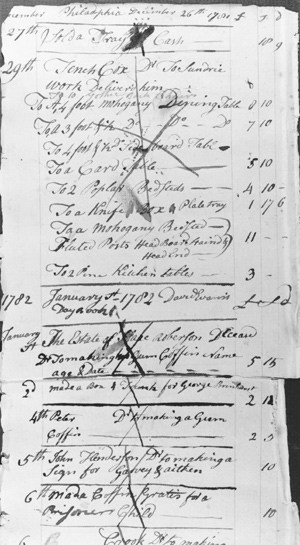 December Philadelphia December 26th 1781 £ s d
27th Cash 10 9
29th Tench Cox Dr To Sundrie
Work Delivered him
To A 4 foot Mohogany Dining Table 8 10
To a 3 foot Do Do 7 10
To 4 foot board Table
To a Card Table 5 10
To 2 Poplar Bedsteeds 4 10
To a Knife Box & Plate tray 1 17 6
To a Mohogany Bedsteed
Fluted Posts Head Board
Head End 11
To 2 Pine Kitchen tables 3
1782 January 1st 1782 David Evans
Day book
January The Estate of Alberson Deceasd
Dr To making a Gum Coffin Name
age & Date 5 15
2d made a Box & for George 2 12
4th Peter Dr to making a Gum
Coffin 2 5
5th John Henderson Dr to making a
Sign for Garvey & aitken 10
6th made Coffin gratis for a
Prisoners Child 10
Crook Dr to making